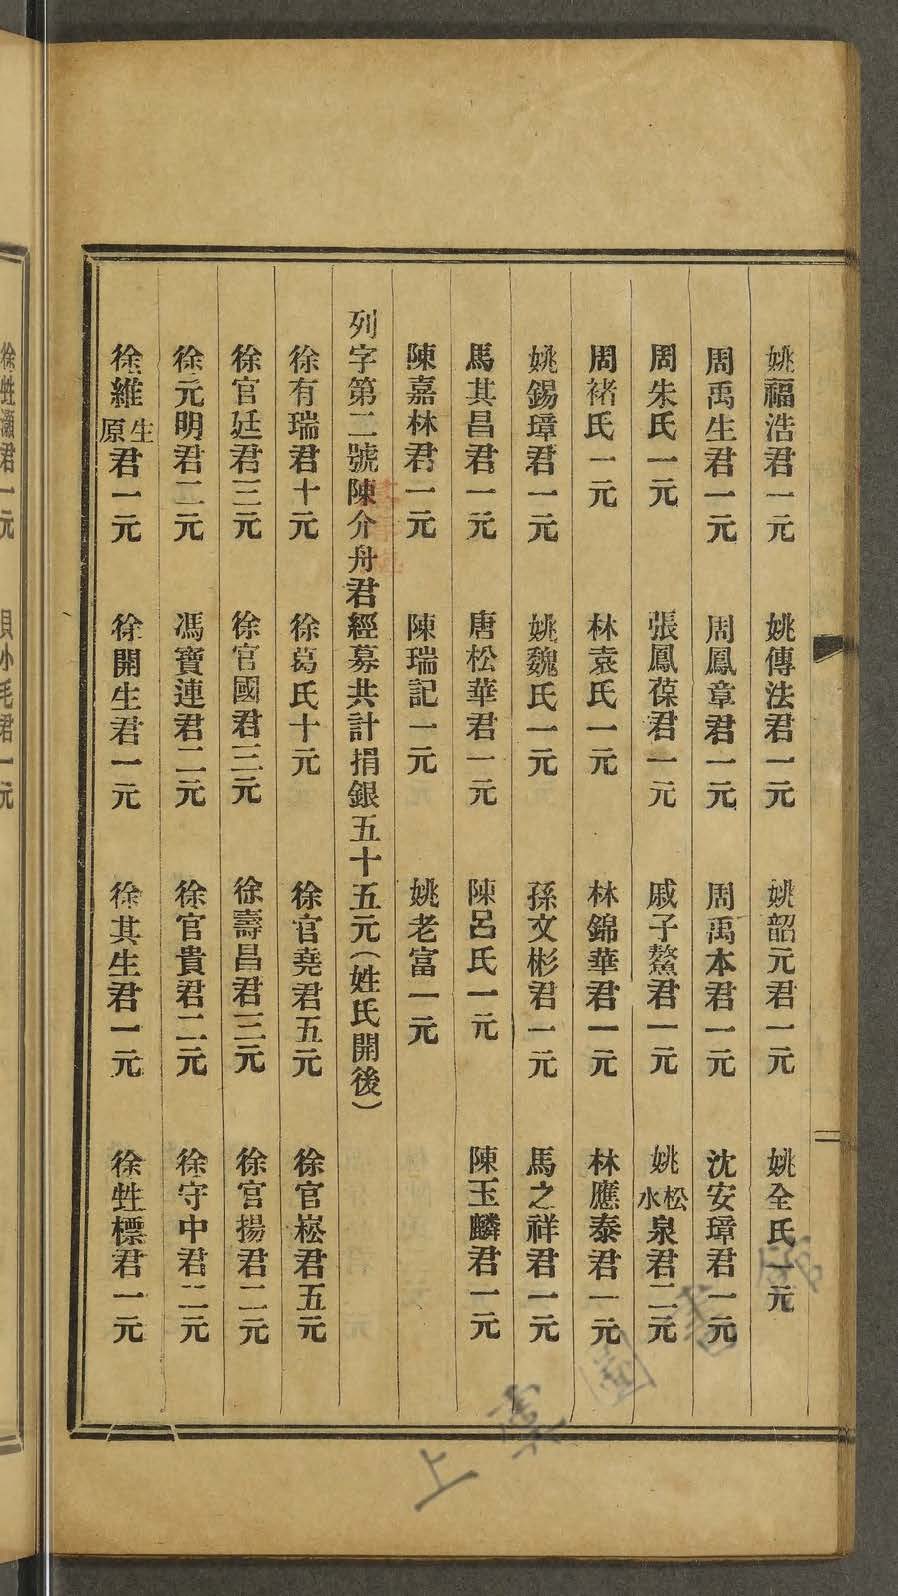 姚福浩君一元　姚傳法君一元　姚韶元君一元　姚全氏一元
周禹生君一元　周鳳章君一元　周禹本君一元　沈安璋君一元
周朱氏一元　張鳳葆君一元　戚子鰲君一元　姚松水泉君二元
周褚氏一元　林袁氏一元　林錦華君一元　林應泰君一元
姚錫璋君一元　姚魏氏一元　孫文彬君一元　馬之祥君一元
馬其昌君一元　唐松華君一元　陳呂氏一元　陳玉麟君一元
陳嘉林君一元　陳瑞記一元　姚老富一元
列字第二號陳介舟君經募共計捐銀五十五元（姓氏開後）
徐有瑞君十元　徐葛氏十元　徐官堯君五元　徐官崧君五元
徐官廷君三元　徐官國君三元　徐壽昌君三元　徐官揚君二元
徐元明君二元　馮寶連君二元　徐官貴君二元　徐守中君二元
徐維生原君一元　徐開生君一元　徐其生君一元　徐甡標君一元
徐甡灝君一元　貝小毛君一元
上虞圖書館